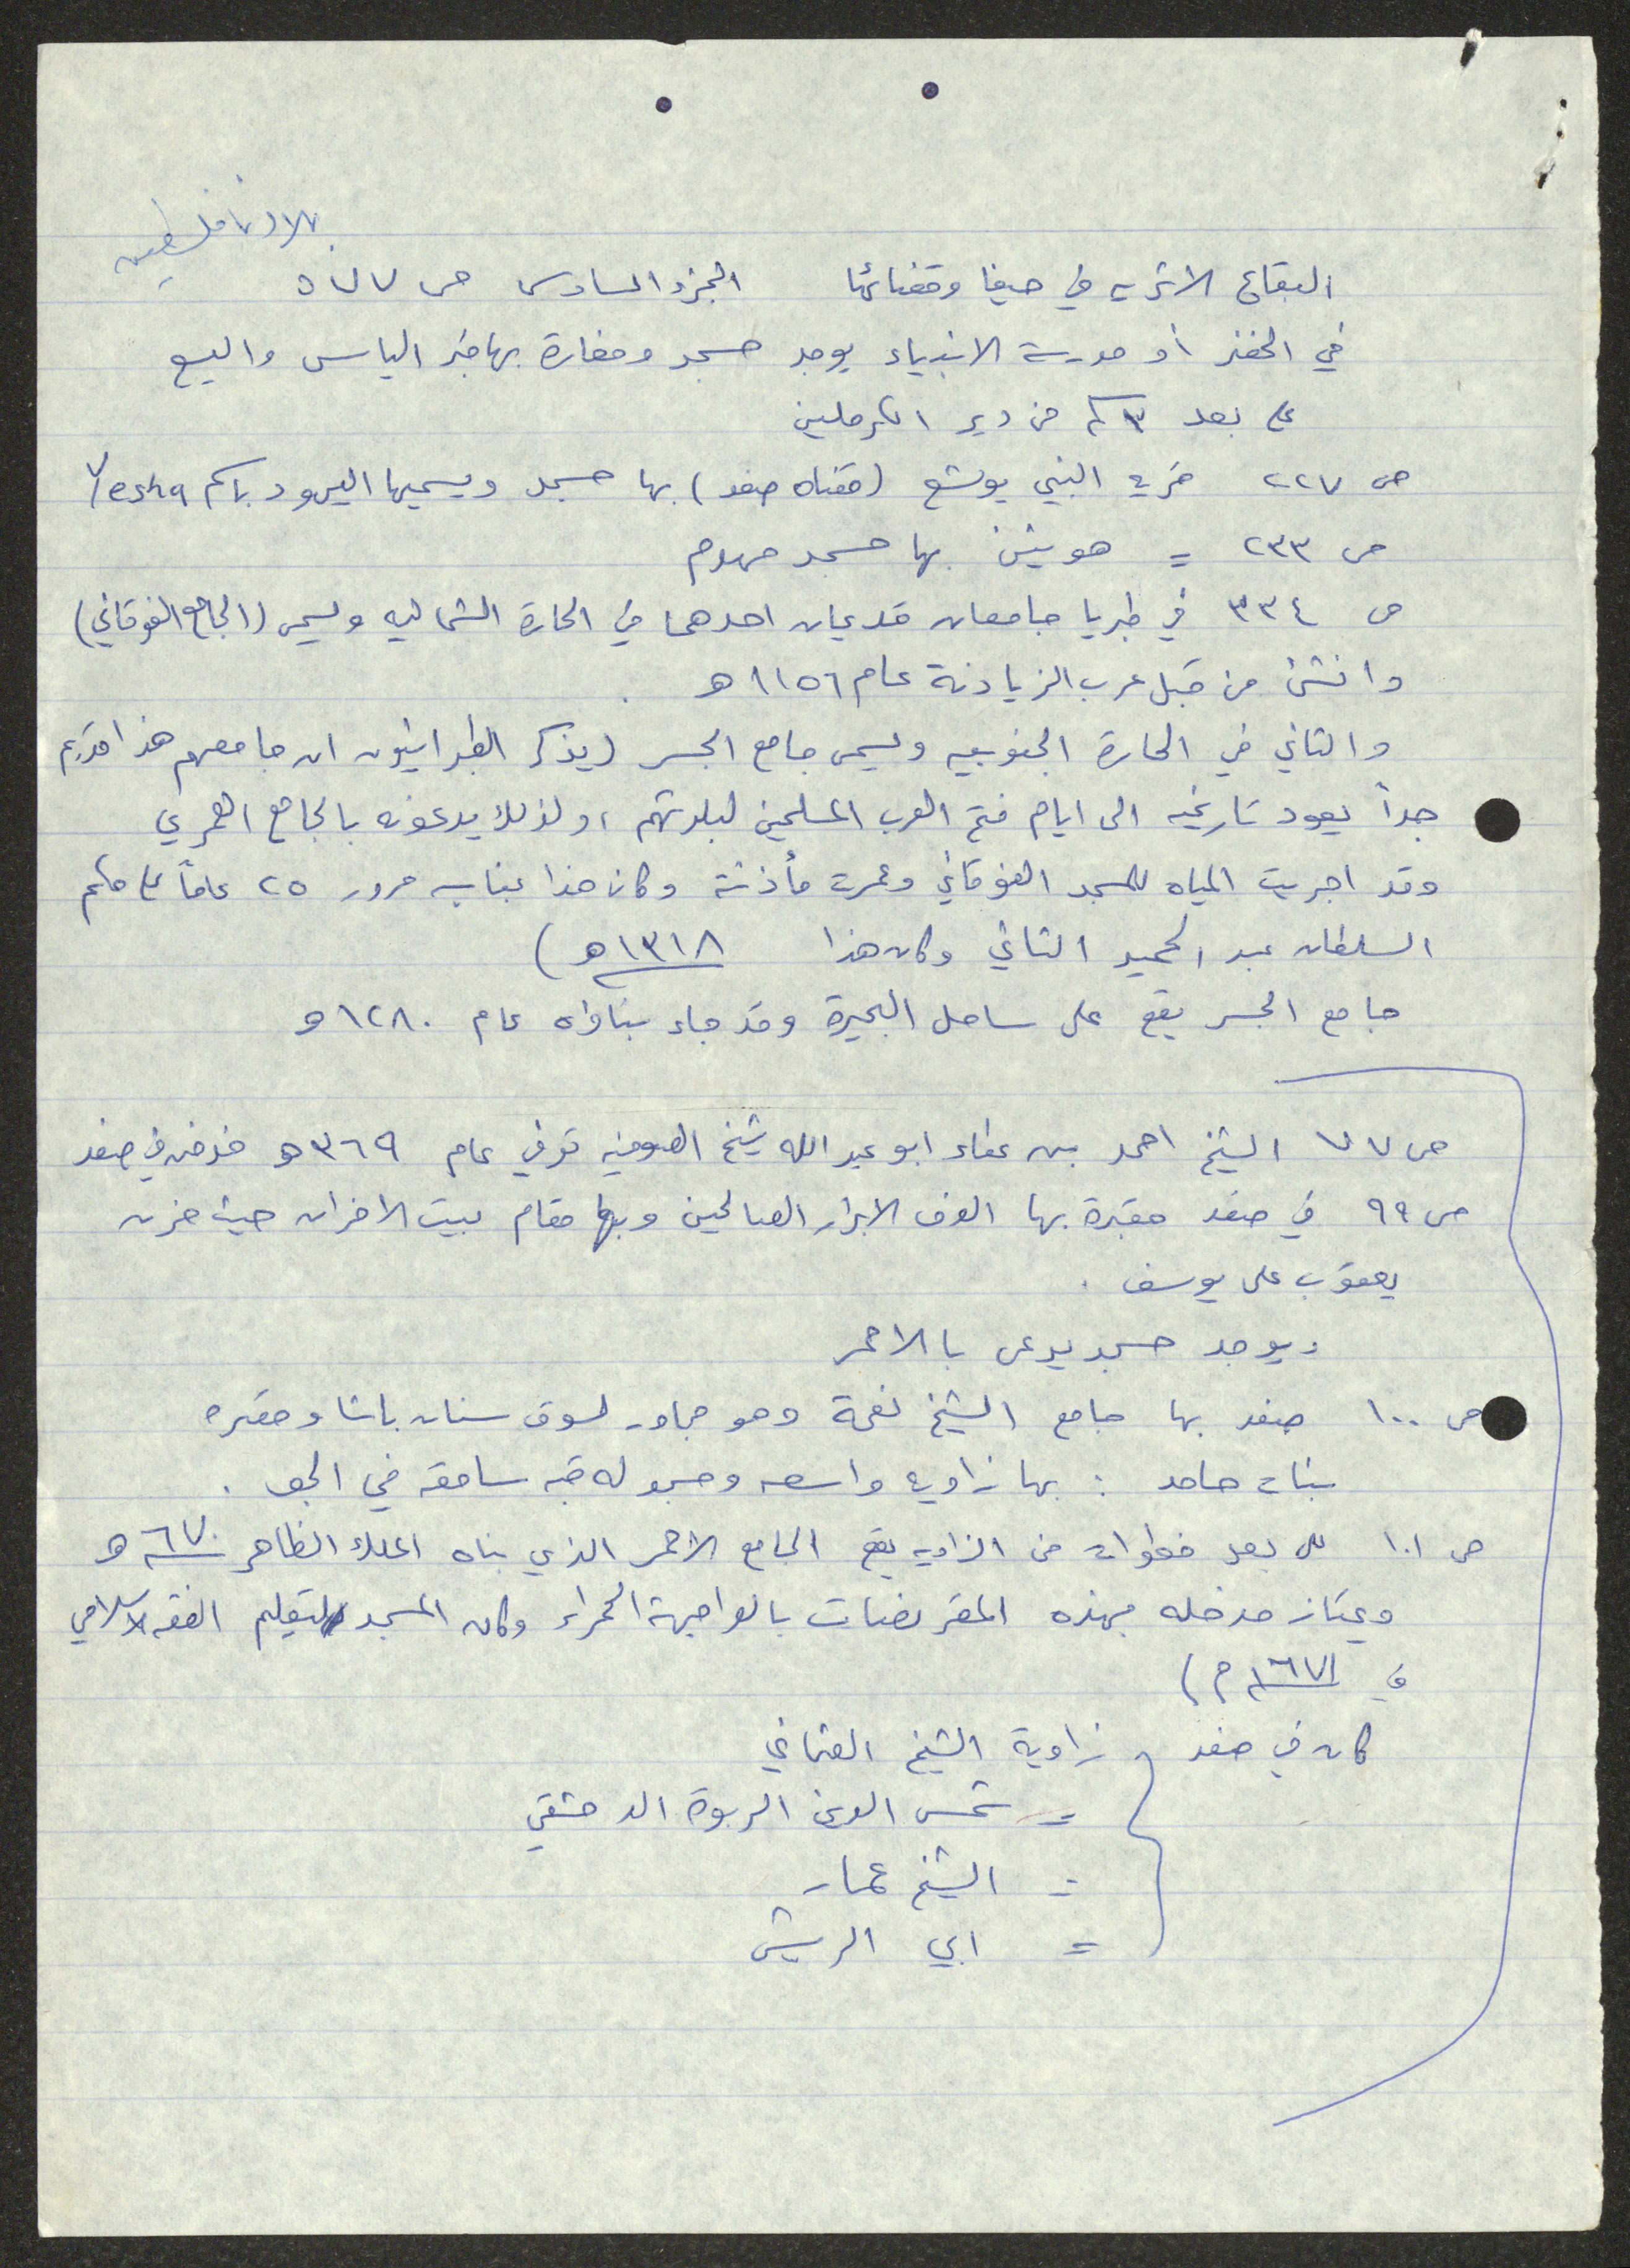 بلادنا فلسطين
البقاع الاثريه في حيفا وقضائها الجزء السادس ص ٥٧٧
في الخضر أو مدرسة الانبياء يوجد مسجد ومغارة بها قبر الياس واليسع
على بعد ٣ كم من دير الكرملين
ص ٢٢٧ قريه النبي يوشع (قضاء صفد) بها مسجد ويسميها اليهود باسم Yesha
ص ٢٣٣ = هونين بها مسجد مهدم
ص ٣٣٤ في طبريا جامعان قديمان احدهما في الحارة الشماليه ويسمى (الجامع الفوقاني)
وانشئ من قبل عرب الزيادنة عام ١١٥٦ هـ .
والثاني في الحارة الجنوبيه ويسمى جامع الجسر (يذكر الطبرانيون ان جامعهم هذا قديم
جداً يعود تاريخيه الى ايام فتح العرب المسلمين لبلدتهم ، ولذلك يدعونه بالجامع العمري
وقد اجريت المياه للمسجد الفوقاني وعمرت مأذنته وكان هذا بمناسبه مرور ٢٥ عاماً على حكم
السلطان عبد الحميد الثاني وكان هذا ١٣١٨ هـ )
جامع الجسر يقع على ساحل البحيرة وقد جاء بناؤه عام ١٢٨٠ هـ
ص ٧٧ الشيخ احمد بن عطاء ابو عبد الله شيخ الصوفيه توفي عام ٣٦٩ هـ فدفن في صفد
ص ٩٩ في صفد مقبرة بها الوف الابرار الصالحين وبها مقام بيت الاحزان حيث حزن
يعقوب على يوسف .
ويوجد مسجد يدعى با الاحمر
ص ١٠٠ صفد بها جامع الشيخ نعمة وهو مجاور لسوق سنان باشا ومقبره
بنات حامد : بها زاويه واسعه ومسجد له قبه سامقه في الجو .
ص ١٠١ على بعد خطوات من الزاويه يقع الجامع الاحمر الذي بناه الملك الظاهر ٦٧٠ هـ
ويمتاز مدخله بهذه المقرنصات بالواجهة الحمراء وكان المسجد لتعليم الفقه الاسلامي
في ١٦٧١ م )
كان في صفد زاوية الشيخ العثماني
= شمس الدين الربوة الدمشقي
= الشيخ عمار
= ابي الريش